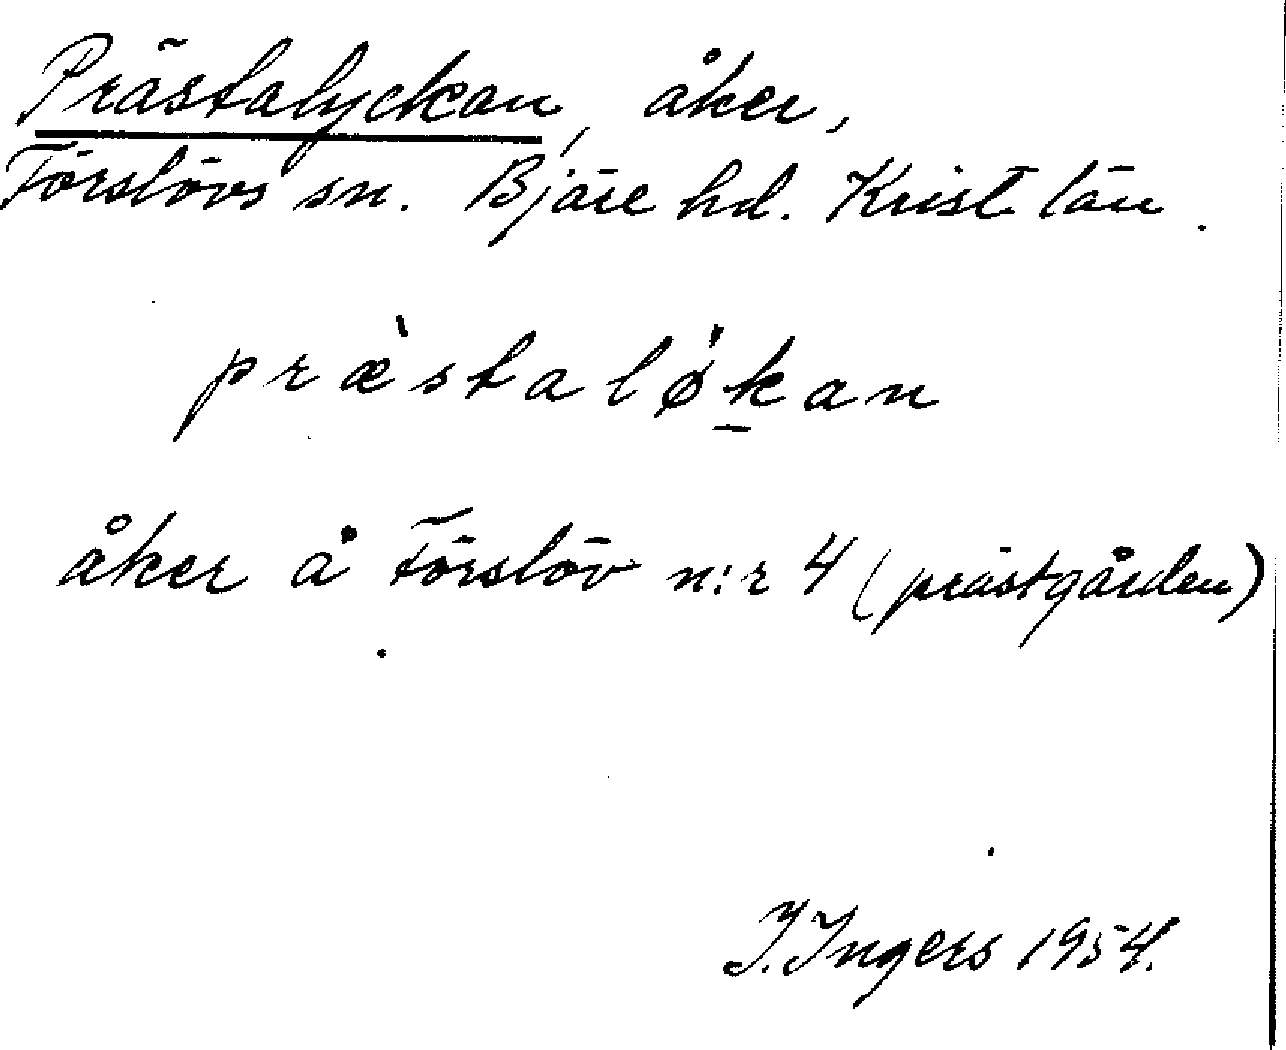 Prästalyckan, åker,
Förslövs sn. Bjäre hd. Krist. län.
præ̀staló̱kan
åker å Förslöv n:r 4 (prästgården)
I. Ingers 1954.